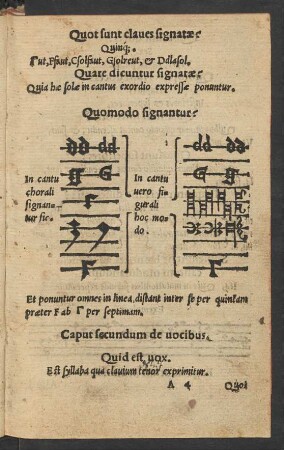 Quot sunt claues signatæ?
Quinq;.
Γut, Ffaut, Csolfaut, Gsolreut, & Ddlasol.
Quare dicuntur signatæ?
Quia hæ solæ in cantus exordio expressæ ponuntur.
Quomodo signantur?
dd dd
g G
F
Γ
In cantu
chorali
signan=
tur sic.
In cantu
uero fi=
gurali
hoc mo=
do.
dd dd
G g
Γ
Et ponuntur omnes in linea, distant inter se per quintam
præter F ab Γ per septimam.
Caput secundum de uocibus.
Quid est uox.
Est syllaba qua clauium tenor exprimitur.
A 4 Quot